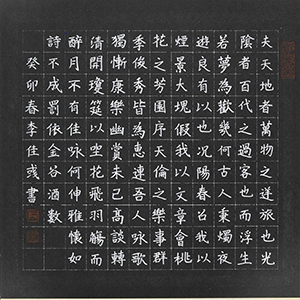 夫天地者萬物之逆旅也光
陰者百代之過客也而浮生
若夢為歡幾何古人秉燭夜
遊良有以也況陽春召我以
煙景大塊假我以文章會桃
花之芳園序天倫之樂事群
季俊秀皆為惠連吾人詠歌
獨慚康樂幽賞未已高談轉
清開瓊筵以坐花飛羽觴而
醉月不有佳咏何伸雅懷如
詩不成罰依金谷酒數
癸卯春李佳彧書